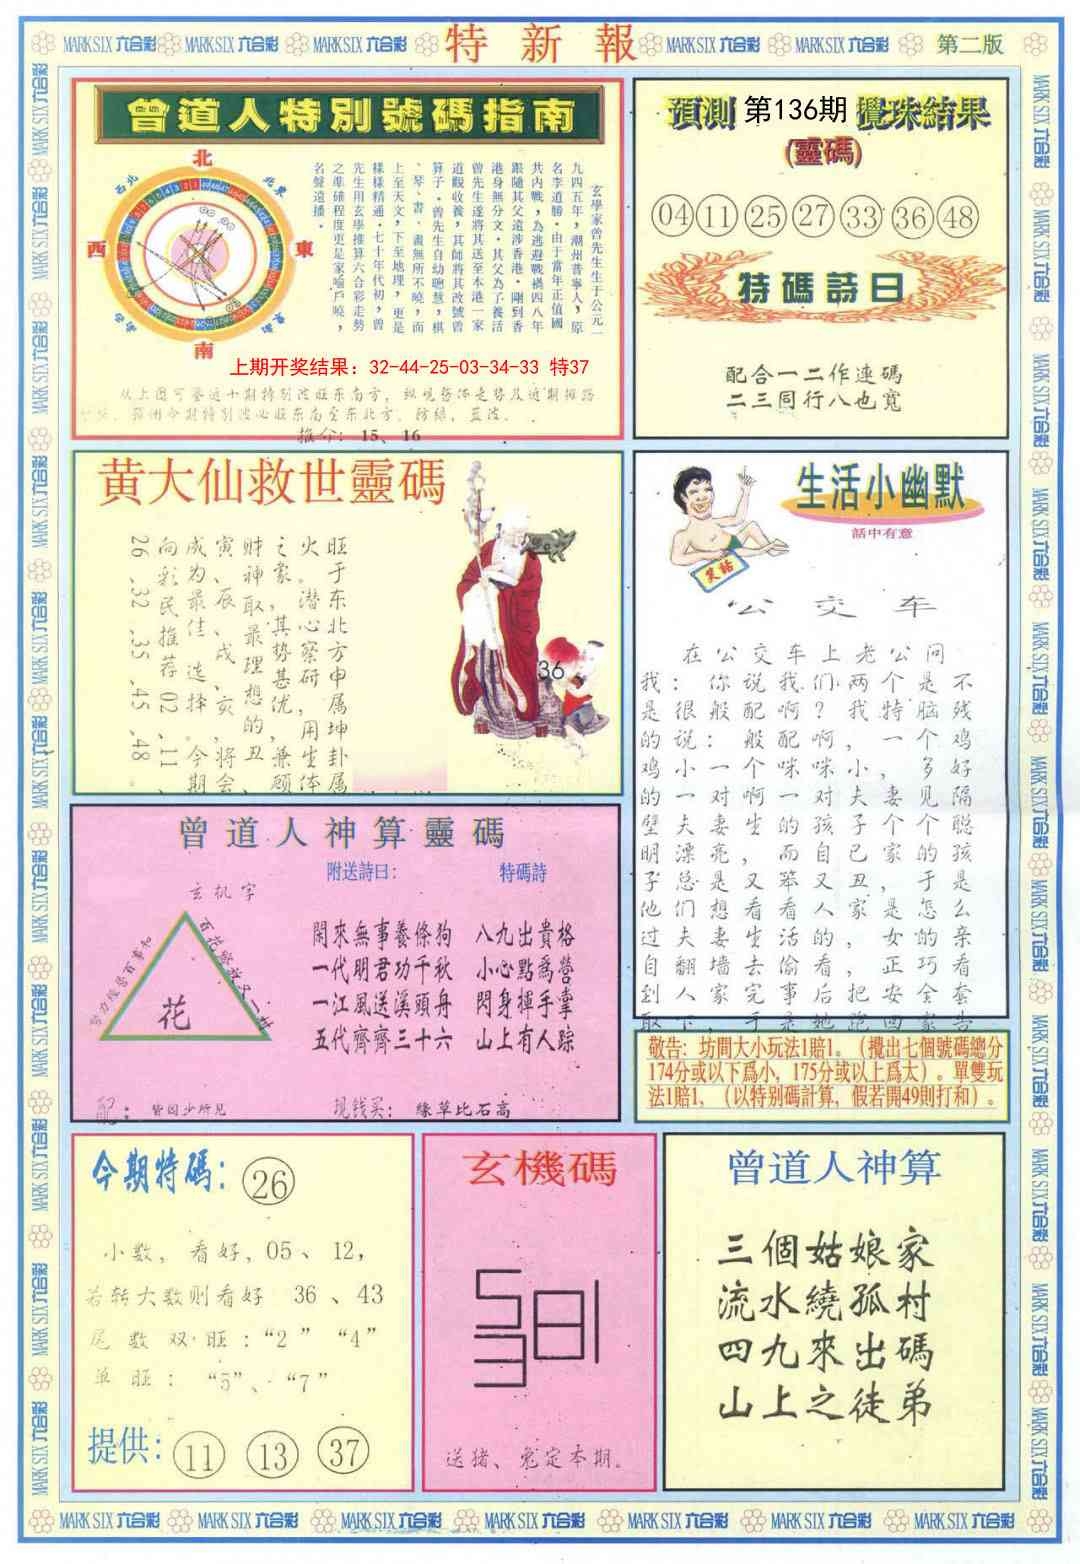 MARK SIX 六合彩 MARK SIX 六合彩 MARK SIX 六合彩 特新報 MARK SIX 六合彩 MARK SIX 六合彩 第二版
曾道人特别號碼指南
北
西北
北東
西
東
東南
南
玄學家曾先生生于公元一
九四五年，潮州普寧人，原
名李道勝·由于當年正值國
共内戰，為逃避戰禍四八年
跟隨其父遠涉香港·剛到香
港身無分文·其父為了養活
曾先生遂將其送至本港一家
道觀收養，其師將其改號曾
算子·曾先生自幼聰慧，棋
、琴、書、畫無所不曉，而
上至天文，下至地理，更是
樣樣精通·七十年代初，曾
先生用玄學推算六合彩走勢
之準確程度更是家喻户曉，
名聲遠播·
上期开奖结果：32-44-25-03-34-33 特37
推介：15、16
預測 第136期 攪珠結果
(靈碼)
04 11 25 27 33 36 48
特碼詩曰
配合一二作連碼
二三同行八也寬
黄大仙救世靈碼
旺于东北方申属坤卦属
火家。潜心察研，用生体
之，其势甚优，兼顾
财神取最理想的丑
寅、辰、戌、亥，将会
成为最佳选择。今期
向彩民推荐02、11、
26、32、35、45、48。
36
生活小幽默
話中有意
笑話
公交车
在公交车上老公问
我：你说我们两个是不
是很般配啊？我特脑残
的说：般配啊，一个鸡
鸡小一个咪咪小，多好
的一对啊一对夫妻见隔
壁夫妻生的孩子个个聪
明漂亮，而自己家的孩
子总是又笨又丑，于是
他们想看看人家是怎么
过夫妻生活的，女的亲
自翻墙去偷看，正巧看
到人家完事后把安全套
取下，于是她跑回家告
曾道人神算靈碼
附送詩曰：
特碼詩
玄机字
花
開來無事養條狗
一代明君功千秋
一江風送溪頭舟
五代齊齊三十六
八九出貴格
小心點爲營
閃身揮手掌
山上有人踪
配： 皆因少所见
现钱买： 緣草比石高
敬告：坊間大小玩法1賠1。（攪出七個號碼總分
174分或以下爲小，175分或以上爲大）。單雙玩
法1賠1，（以特别碼計算，假若開49則打和）。
今期特碼：26
小数，看好，05、12，
若转大数则看好 36、43
尾数双旺：“2” “4”
单旺： “5”、“7”
提供： 11 13 37
玄機碼
送猪、兔定本期。
曾道人神算
三個姑娘家
流水繞孤村
四九來出碼
山上之徒弟
MARK SIX 六合彩 MARK SIX 六合彩 MARK SIX 六合彩 MARK SIX 六合彩 MARK SIX 六合彩 MARK SIX 六合彩 MARK SIX 六合彩